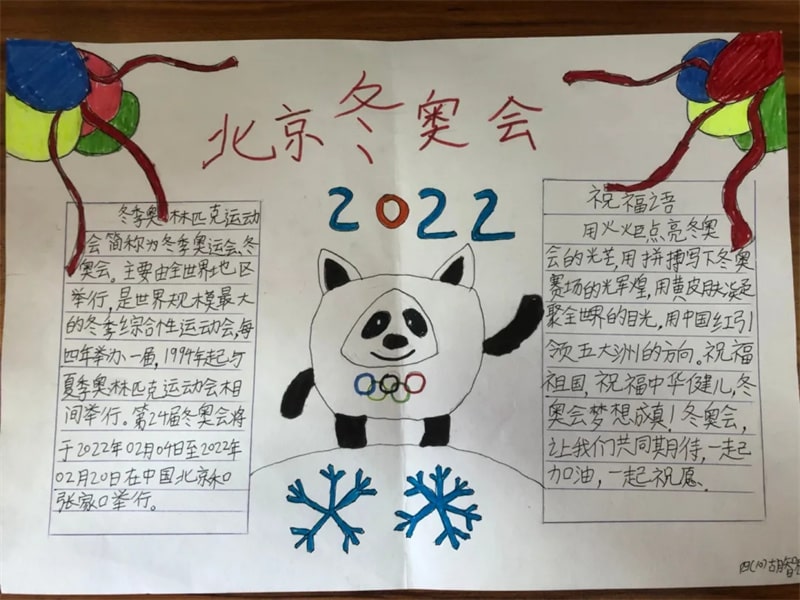 北京冬奥会
2022
冬季奥林匹克运动
会简称为冬季奥运会、冬
奥会。主要由全世界地区
举行，是世界规模最大
的冬季综合性运动会，每
四年举办一届，1994年起与
夏季奥林匹克运动会相
间举行。第24届冬奥会将
于2022年02月04日至2022年
02月20日在中国北京和
张家口举行。
祝福语
用火炬点亮冬奥
会的光芒，用拼搏写下冬奥
赛场的光辉煌，用黄皮肤凝
聚全世界的目光，用中国红引
领五大洲的方向。祝福
祖国，祝福中华健儿，冬
奥会梦想成真！冬奥会，
让我们共同期待，一起
加油，一起祝愿.
四(10)胡智